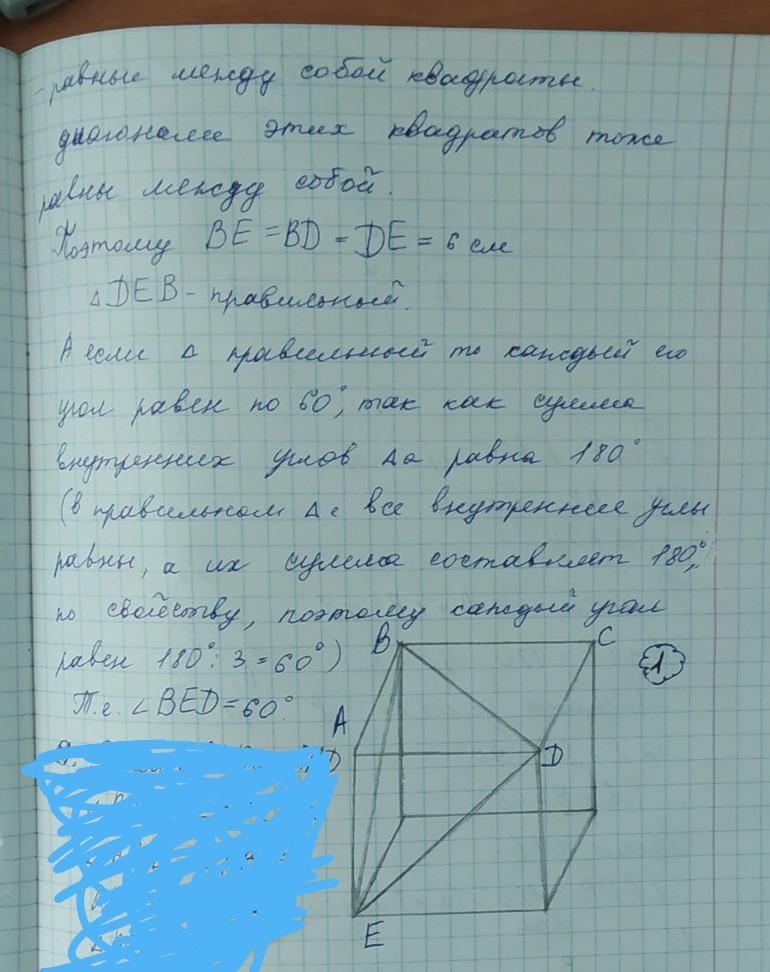 равные между собой квадраты.
диагонали этих квадратов тоже
равны между собой.
Поэтому BE = BD = DE = 6 см
△ DEB - правильный.
А если △ правильный то каждый его
угол равен по 60°, так как сумма
внутренних углов △а равна 180°
(в правильном △е все внутренние углы
равны, а их сумма составляет 180°,
по свойству, поэтому каждый угол
равен 180° : 3 = 60°)
Т.е. ∠BED = 60°
B
C
1
A
D
E